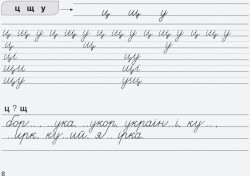 ц щ у ц щ у
ц щ у ц щ у ц щ у ц щ у ц щ у ц щ у
ц щ у
ці цу
щи щі
щу ущ
ц ? щ
бор.., ..ука, ..укор, україн..і, ку..,
..ирк, ку..ий, я..ірка.
8